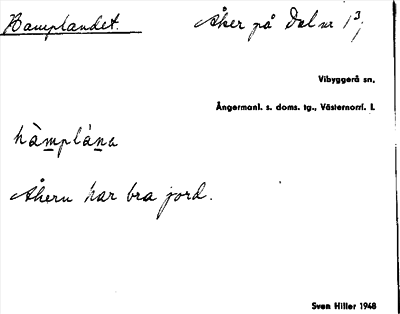 Hamplandet. Åker på Dal nr 1³,
Vibyggerå sn,
Ångermanl. s. doms. tg., Västernorrl. l.
hàmplána
Åkern har bra jord.
Sven Hiller 1948